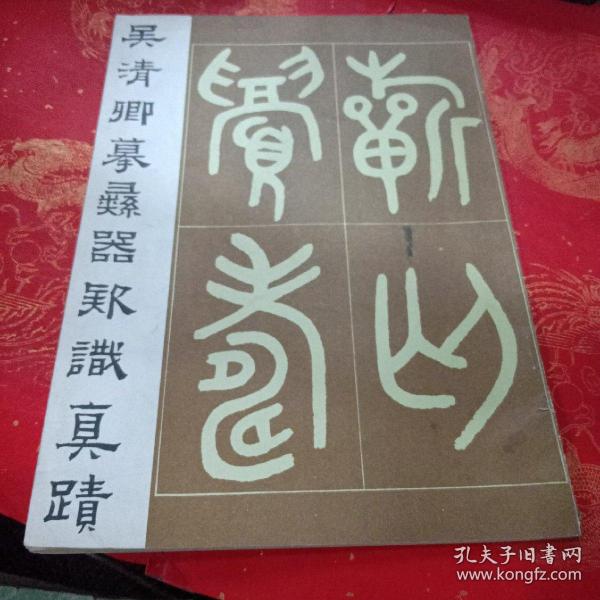 吳清卿摹彝器欵識真蹟
孔夫子旧书网
www.kongfz.com